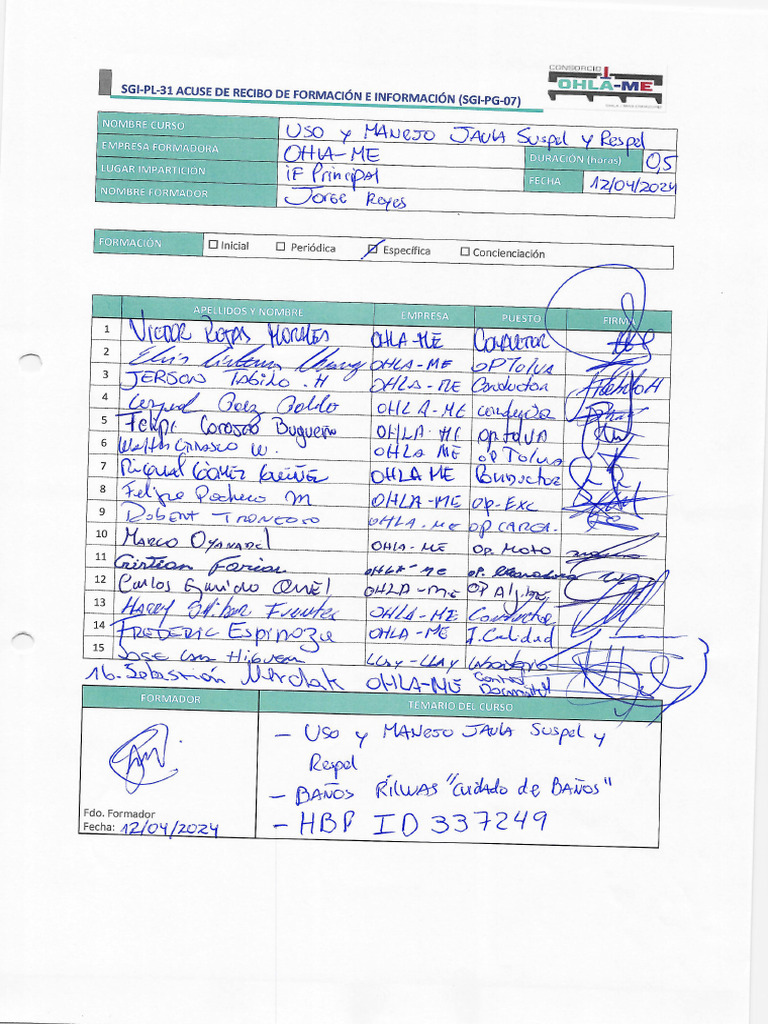 CONSORCIO
OHLA-ME
SGI-PL-31 ACUSE DE RECIBO DE FORMACIÓN E INFORMACIÓN (SGI-PG-07)
NOMBRE CURSO USO y MANEJO JAULA Suspel y Respel
EMPRESA FORMADORA OHLA-ME DURACIÓN (horas) 0,5
LUGAR IMPARTICIÓN iF Principal FECHA 12/04/2024
NOMBRE FORMADOR Jorge Reyes
FORMACIÓN Inicial Periódica Específica Concienciación
APELLIDOS Y NOMBRE EMPRESA PUESTO FIRMA
1 VICTOR ROJAS MORALES OHLA-ME CONDUCTOR
2 OHLA-ME OP TOLVA
3 JERSON TABILO .H OHLA-ME Conductor
4 OHLA-ME conductor
5 Felipe Carasco Bugueño OHLA-ME OP tolVA
6 Walter Carrasco W. OHLA ME OP TOLVA
7 Miguel GÓMEZ OHLA ME Conductor
8 Felipe Pacheco M OHLA-ME op.Exc
9 ROBERT TRONCOSO OHLA-ME OP CARGA.
10 MARCO OYANADEL OHLA-ME OP. MOTO
11 Cristian Farias OHLA-ME OP.
12 Carlos OHLA-ME OP
13 HARRY Fuentes OHLA-ME Conductor
14 FREDERIC Espinoza OHLA-ME I. Calidad
15 JOSE Luis Higuera LLAY-LLAY
16. Sebastián OHLA-ME Control Documental
FORMADOR TEMARIO DEL CURSO
- USO y MANEJO JAULA Suspel y
Respel
- BAÑOS RILWAS "Cuidado de BAÑOS"
- HBP ID 337249
Fdo. Formador
Fecha: 12/04/2024